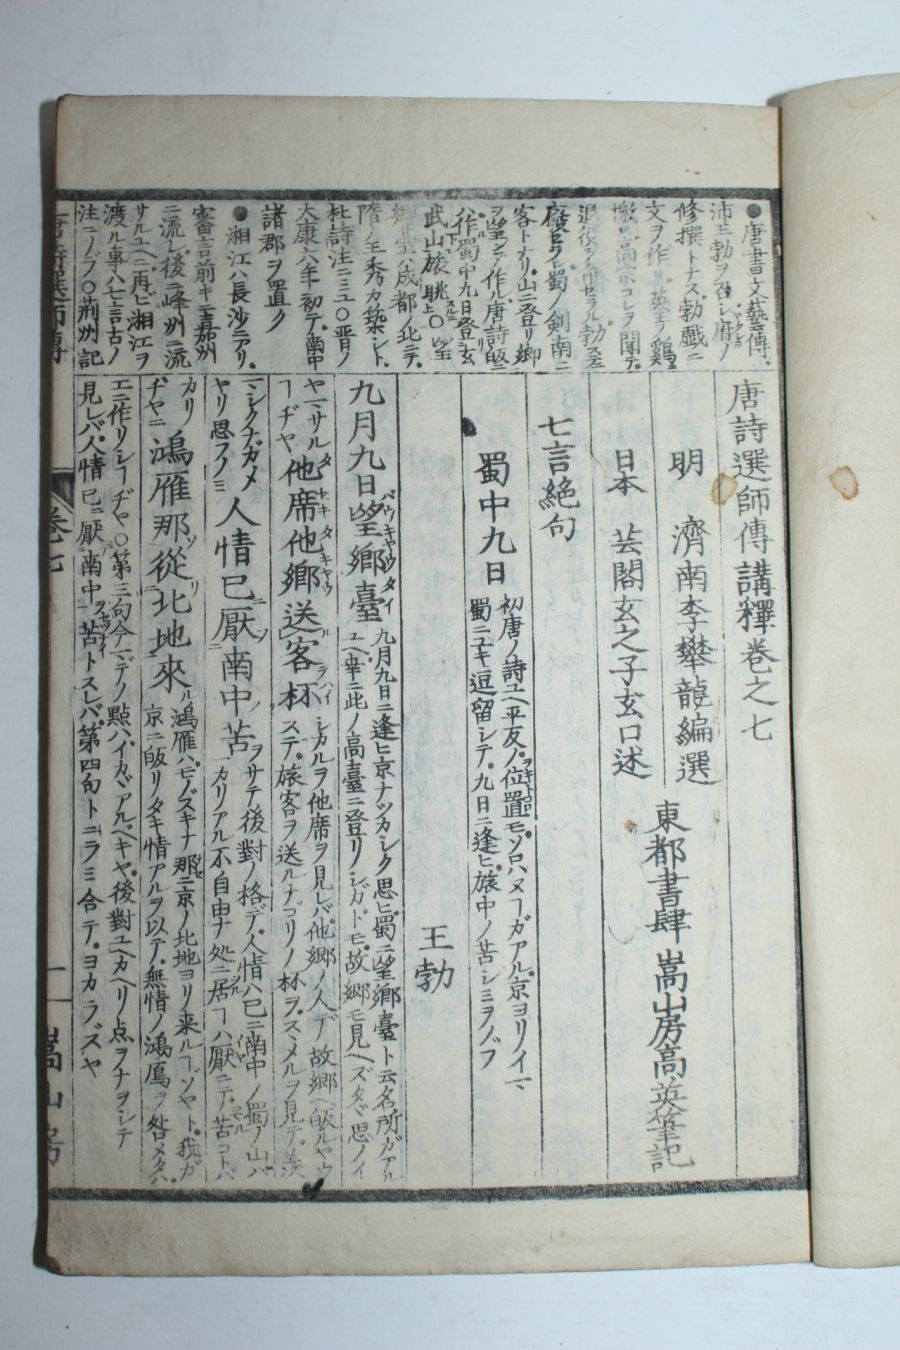 唐詩選師傳講釋巻之七
明　濟南李攀龍編選
日本　芸閣玄之子玄口述
東都書肆　嵩山房高英筆記
七言絶句
初唐ノ詩ユヘ平仄ノ位置モソロハヌヿガアル京ヨリイマ
蜀中九日
蜀ニユキ逗留シテ九日ニ逢ヒ旅中ノ苦シミヲノブ
王勃
九月九日望郷臺
九月九日ニ逢ヒ京ナツカシク思ヒ蜀ニ望郷臺ト云名所ガアル
ユヘ幸ニ此ノ高臺ニ登リシガドモ故郷モ見ヘズタヾ思ノイ
ヤマサルヿヂヤ
他席他郷送客杯
シカルヲ他席ヲ見レバ他郷ノ人デ故郷ヘ皈ルヤウ
スデ旅客ヲ送ルナゴリノ杯ヲスヽメルヲ見テ羨
マシクナガメヤリ思フノミ
人情已厭南中苦
ヲサテ後對ノ格デ人情ハ已ニ南中ノ蜀ノ山バ
カリアル不自由ナ処ニ居ルヿハ厭ニテ苦コトバ
カリヂヤニ
鴻雁那從北地來
鴻雁ハモノズキナ那ニ京ノ北地ヨリ来ルヿゾヤト我ガ
京ニ皈リタキ情アルヲ以テ無情ノ鴻鴈ヲ咎メタハ
エニ作リシヿヂヤ〇第三句今マデノ點ハイカヾアルベキヤ後對ユヘカヘリ点ヲナヲシテ
見レバ人情已ニ厭南中苦トスレバ第四句トニラミ合テヨカラズヤ
●唐書文藝傳
沛王勃ヲ召シ府ノ
修撰トナス勃戲ニ
文ヲ作
高宗コレヲ聞テ
廢セラレ蜀ノ剣南ニ
客トナリ山ニ登リ郷
ヲ望ンデ作ル唐詩皈ニ
ハ作蜀中九日登玄
武山旅眺
郷臺ハ成都ノ北ニテ
隋ノ王秀カ築シト
杜詩注ニミユ〇晋ノ
大康六年初テ南中
諸郡ヲ置ク
●湘江ハ長沙ニアリ
審言前キニ嘉州
ニ流レ後ニ峰州ニ流
サルユヘニ再ビ湘江ヲ
渡ル事ハ七言古ノ
注ニノブ〇荊州記
唐詩選師傳
巻七
一
嵩山房